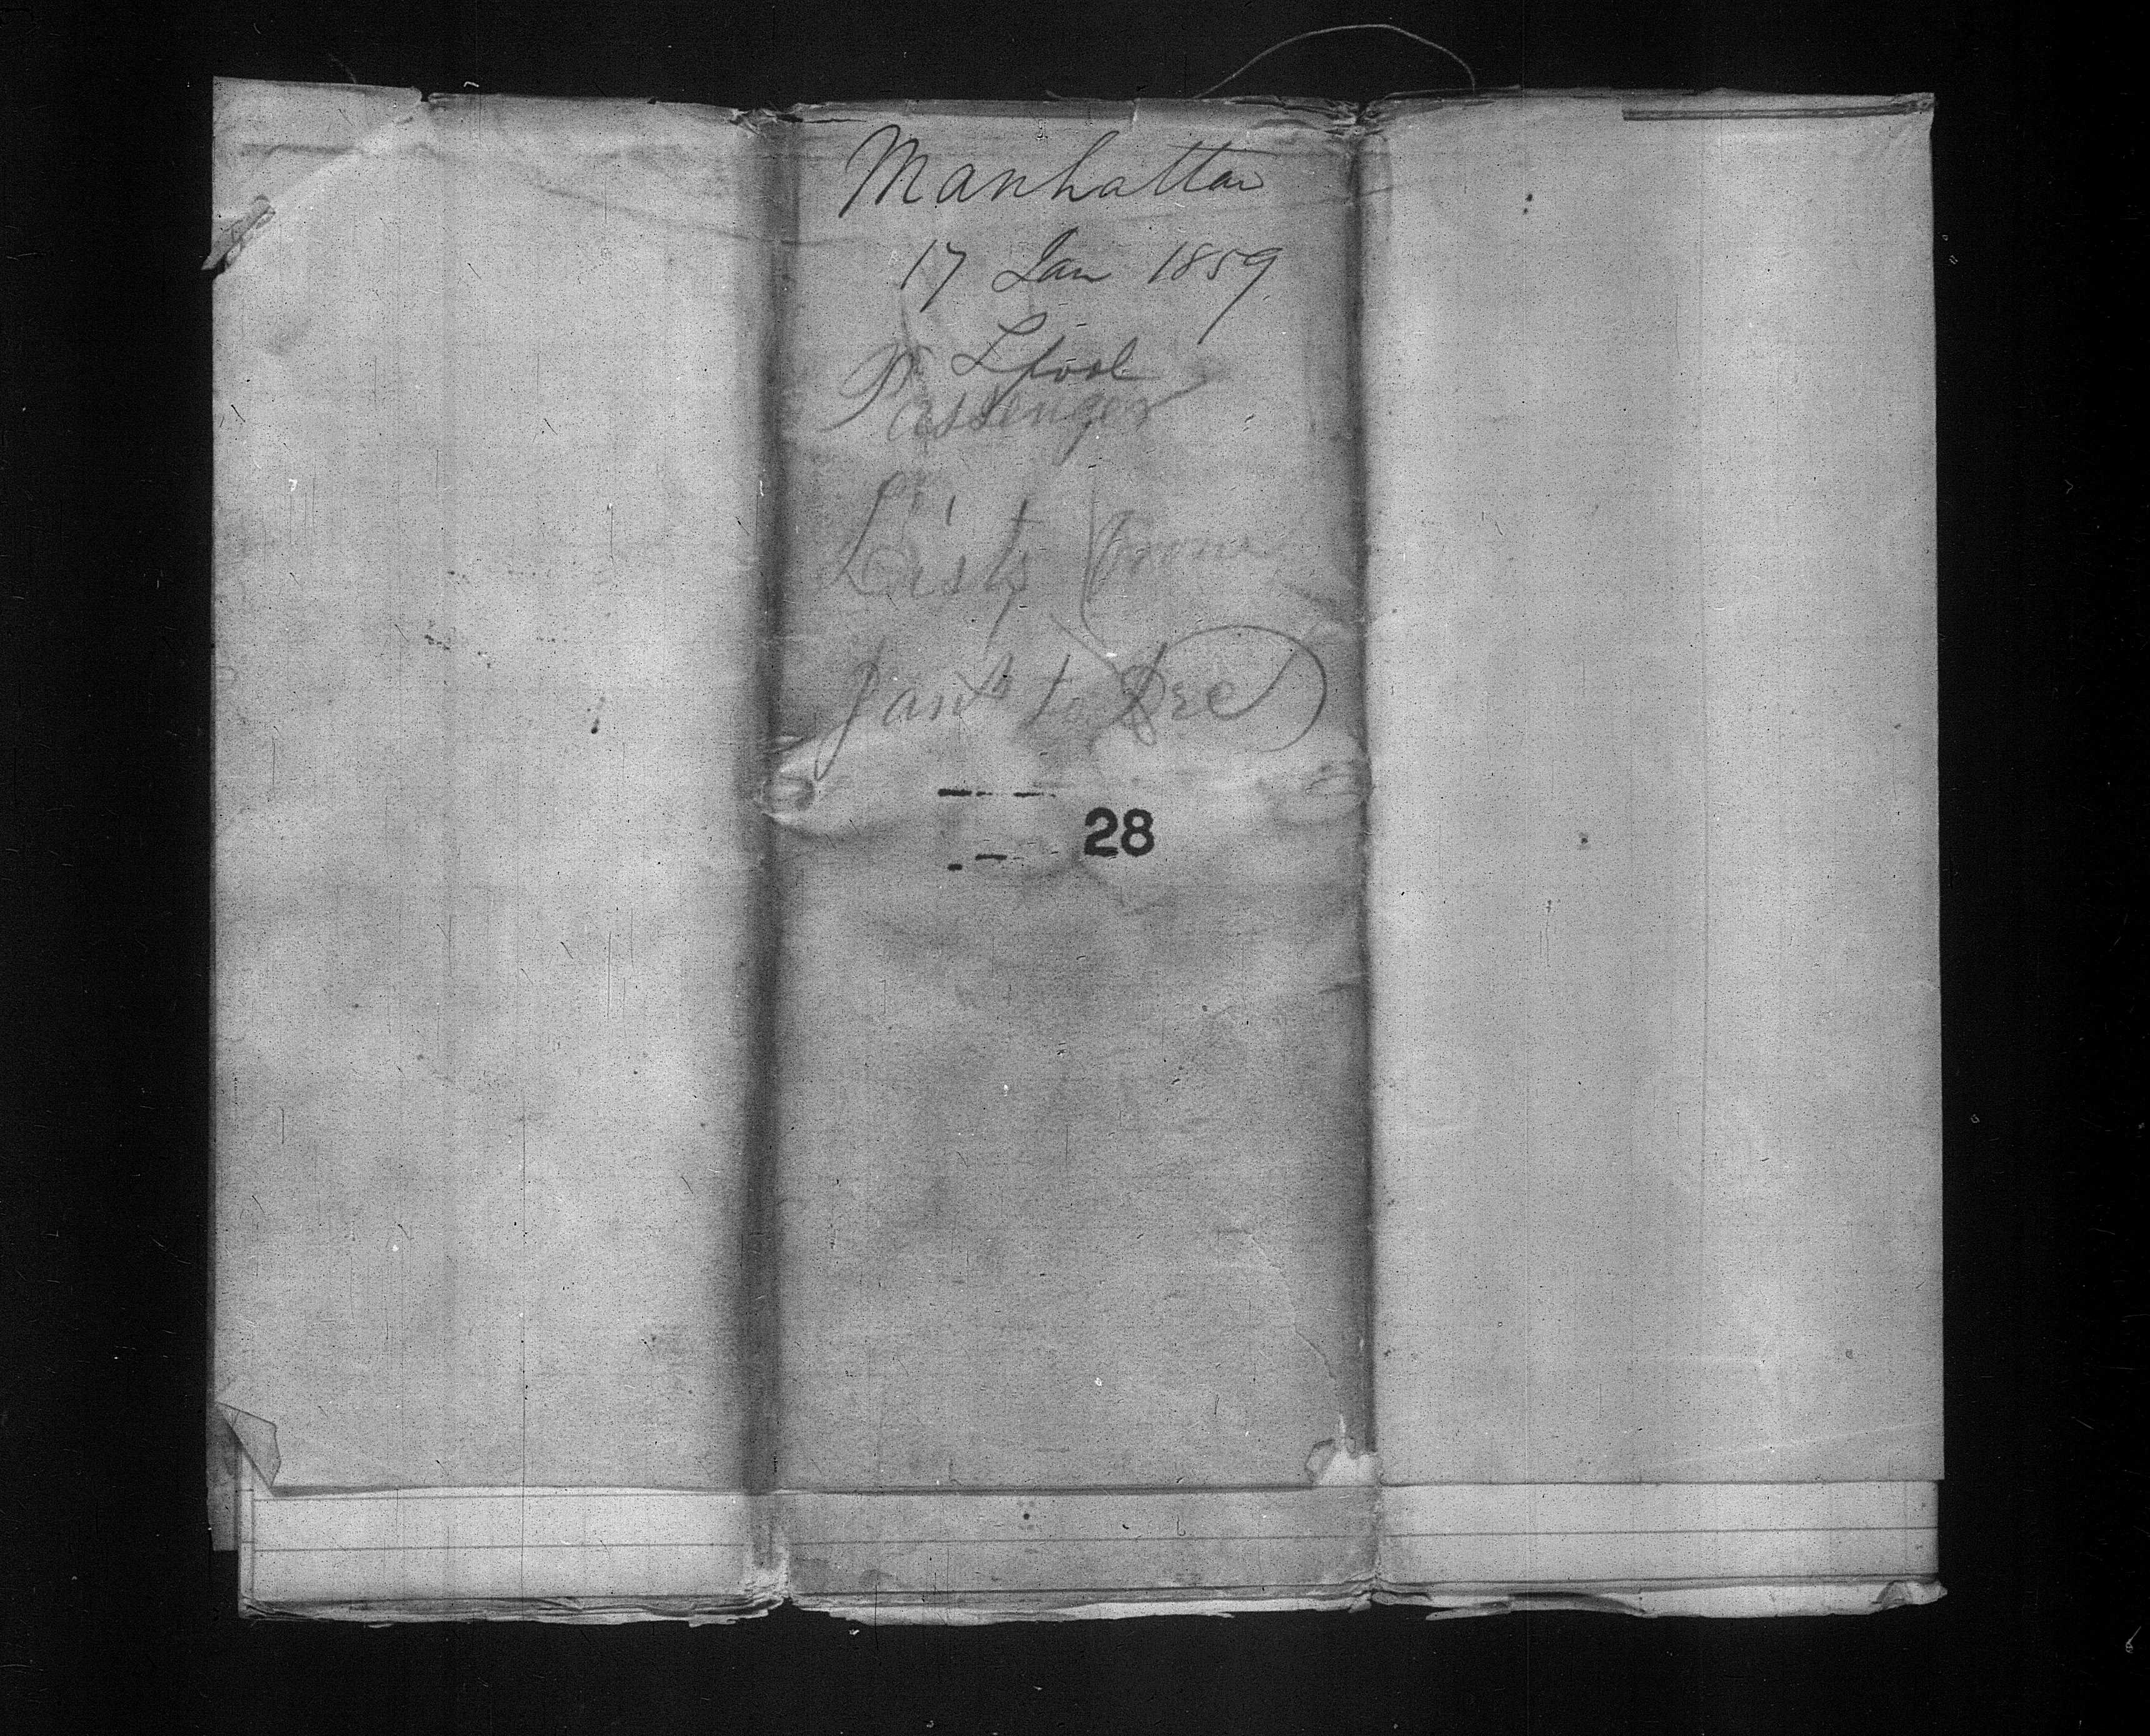 Manhattan
17 Jan 1859
Lpool
Passenger
Lists from
Jany to Dec
28